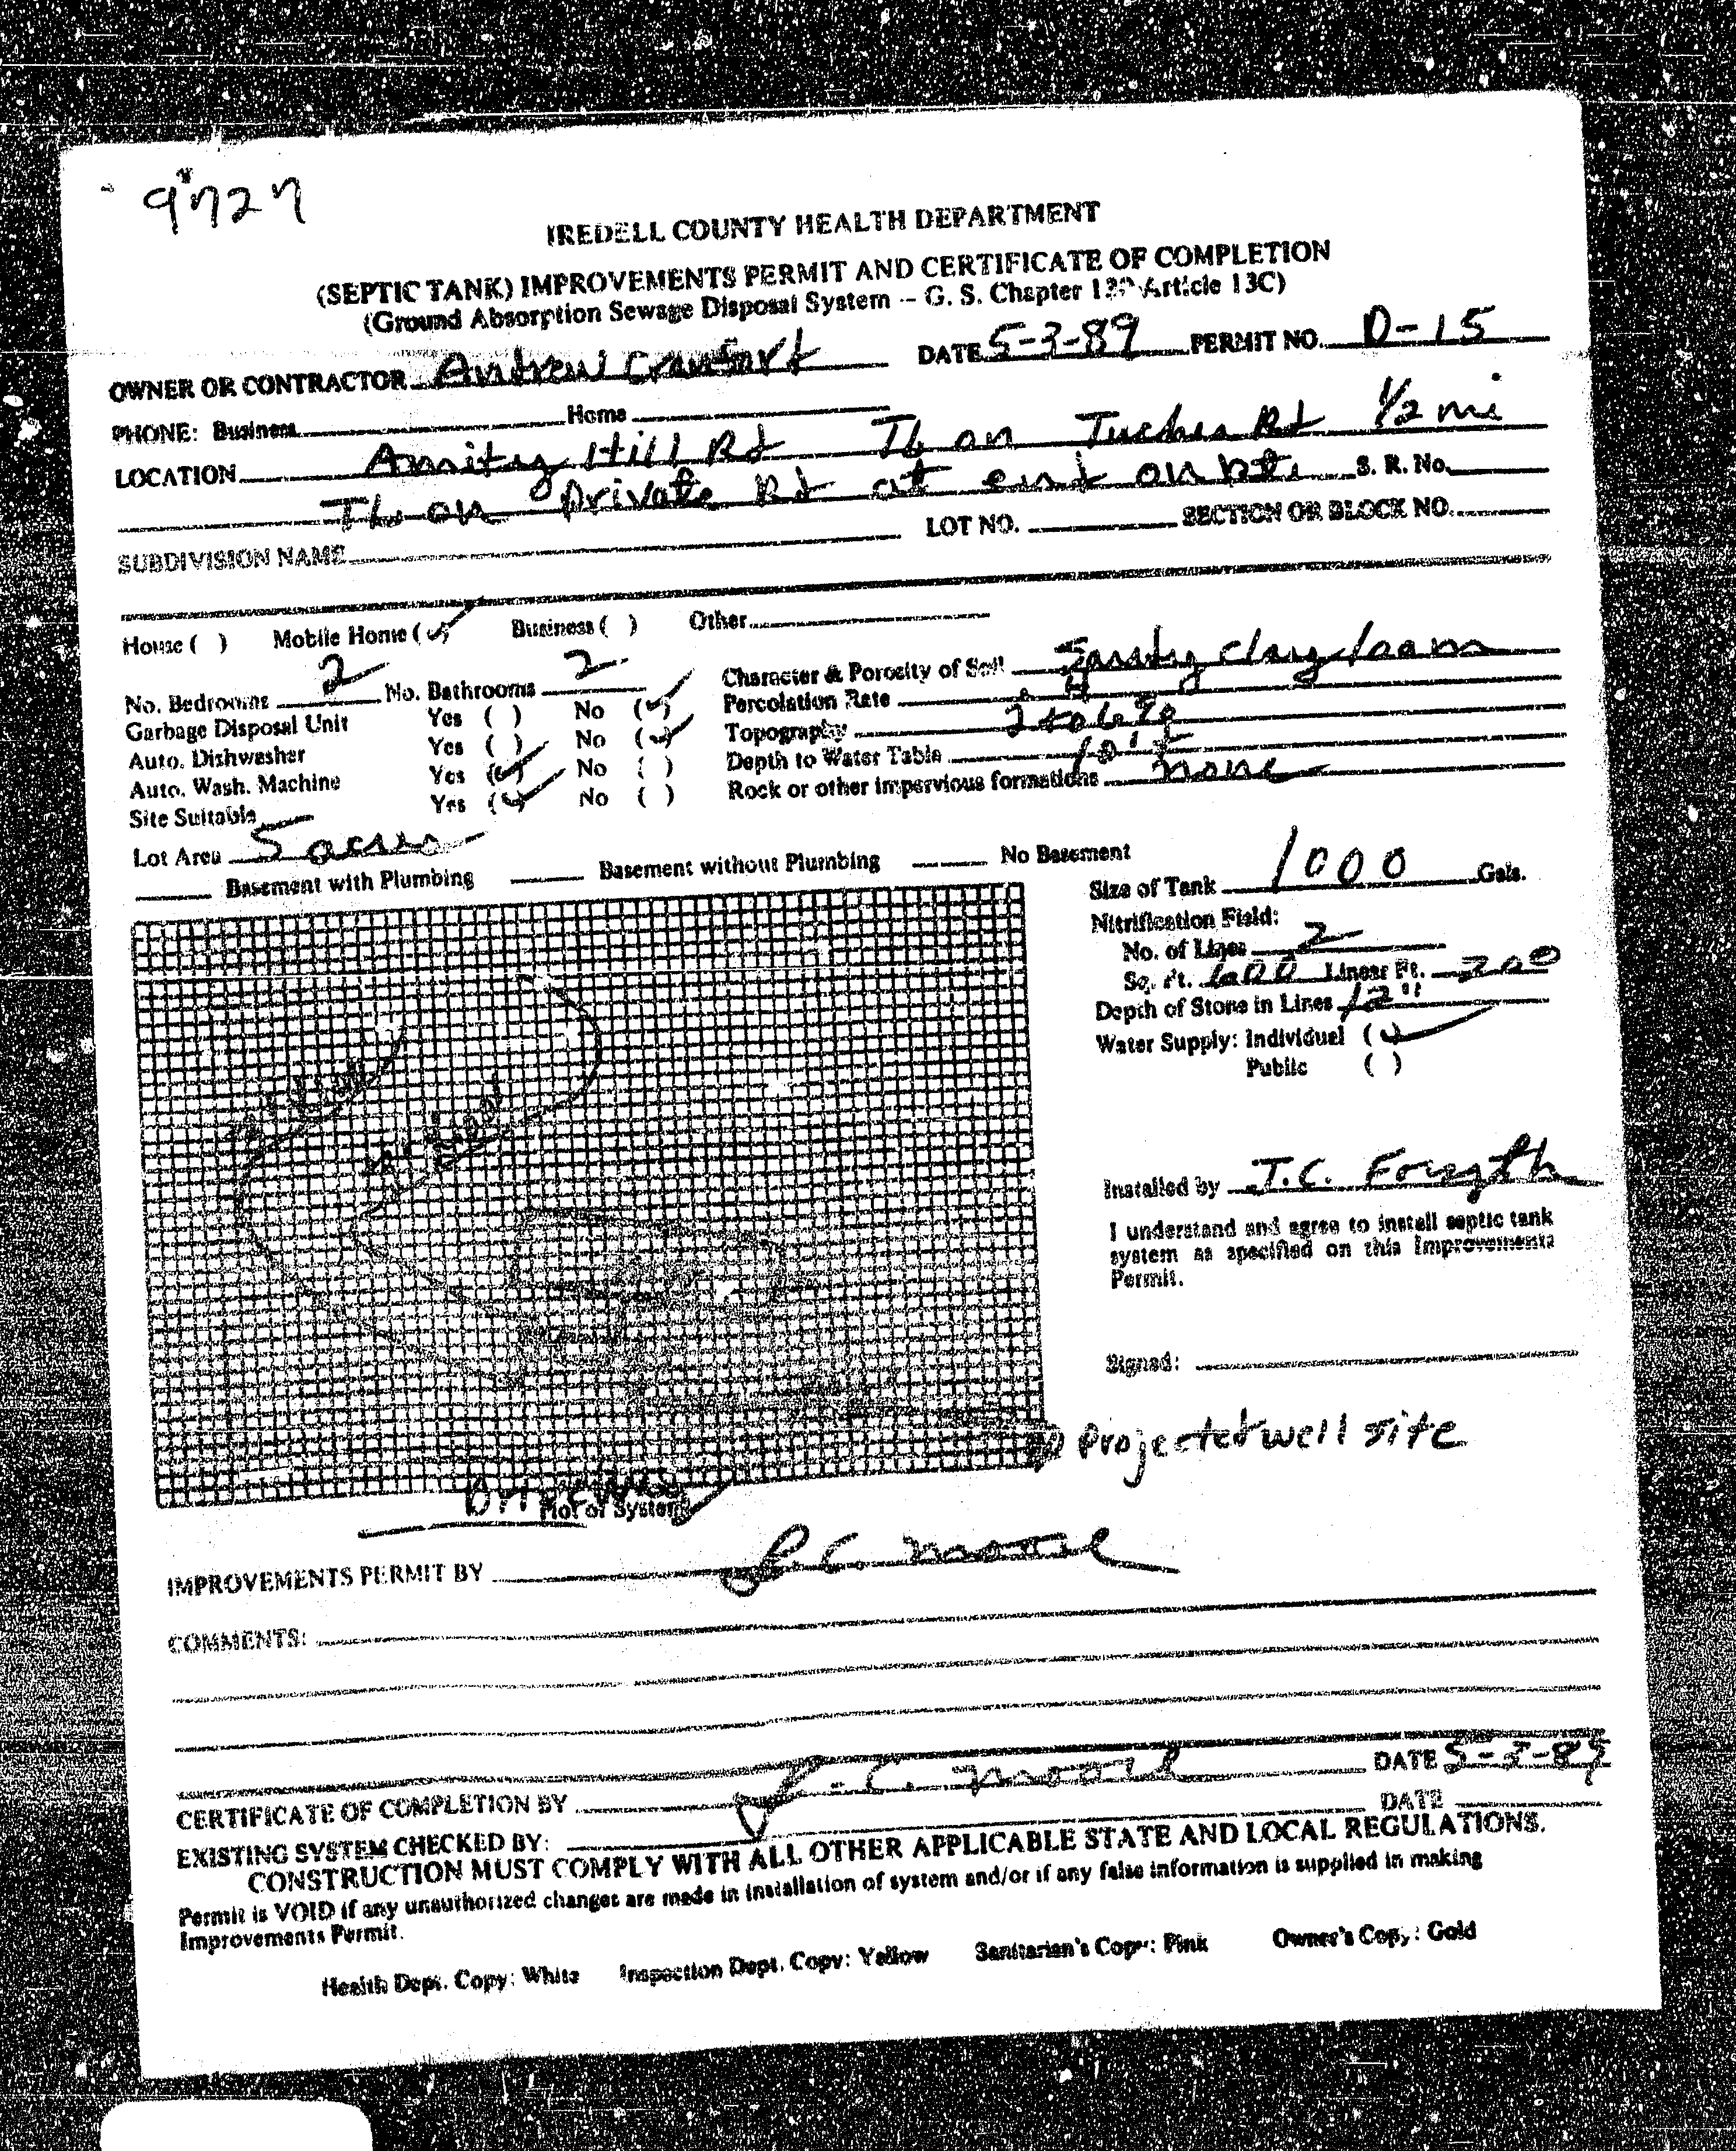 9727
IREDELL COUNTY HEALTH DEPARTMENT
(SEPTIC TANK) IMPROVEMENTS PERMIT AND CERTIFICATE OF COMPLETION
(Ground Absorption Sewage Disposal System -- G. S. Chapter Article 13C)
OWNER OR CONTRACTOR Andrew DATE 5-3-89 PERMIT NO. D-15
PHONE: Business Home
LOCATION Amity Hill Rd TL on Rd 1/2 mi
TL on private Rd at end on S. R. No.
SUBDIVISION NAME LOT NO. SECTION OR BLOCK NO.
House ( ) Mobile Home (✓) Business ( ) Other
No. Bedrooms 2 No. Bathrooms 2 Character & Porosity of Soil Sandy clay loam
Garbage Disposal Unit Yes ( ) No (✓) Percolation Rate
Auto. Dishwasher Yes ( ) No (✓) Topography 2 to 6 %
Auto. Wash. Machine Yes (✓) No ( ) Depth to Water Table 10'+
Site Suitable Yes (✓) No ( ) Rock or other impervious formations none
Lot Area 5 acres
Basement with Plumbing Basement without Plumbing No Basement
Size of Tank 1000 Gals.
Nitrification Field:
No. of Lines 2
Sq. Ft. 600 Linear Ft. 200
Depth of Stone in Lines 12"
Water Supply: Individual (✓)
Public ( )
Installed by J.C. Forsyth
I understand and agree to install septic tank
system as specified on this Improvements
Permit.
Signed:
Projected well site
Driveway
Plot of System
IMPROVEMENTS PERMIT BY C. Moore
COMMENTS:
CERTIFICATE OF COMPLETION BY C. Moore DATE 5-3-89
EXISTING SYSTEM CHECKED BY: DATE
CONSTRUCTION MUST COMPLY WITH ALL OTHER APPLICABLE STATE AND LOCAL REGULATIONS.
Permit is VOID if any unauthorized changes are made in installation of system and/or if any false information is supplied in making
Improvements Permit.
Health Dept. Copy: White Inspection Dept. Copy: Yellow Sanitarian's Copy: Pink Owner's Copy: Gold